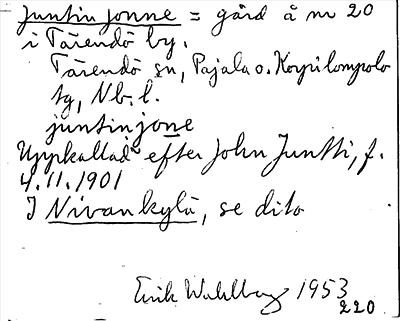 Juntin Jonne = gård å nr 20
i Tärendö by.
Tärendö sn, Pajala o. Korpilompolo
tg, Nb. l.
juntin jone
Uppkallad efter John Juntti, f.
4.11.1901
I Nivankylä, se dito
Erik Wahlberg 1953
220